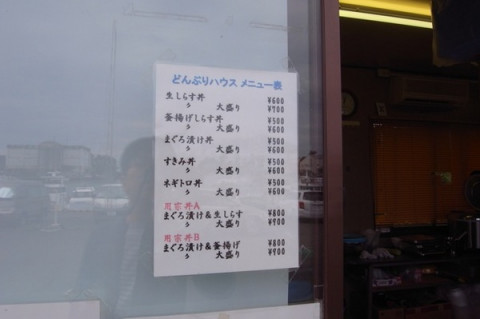 どんぶりハウス メニュー表
生しらす丼 ¥600
〃 大盛り ¥700
釜揚げしらす丼 ¥500
〃 大盛り ¥600
まぐろ漬け丼 ¥500
〃 大盛り ¥600
すきみ丼 ¥500
〃 大盛り ¥600
ネギトロ丼 ¥500
〃 大盛り ¥600
用宗丼A
まぐろ漬け&生しらす ¥800
〃 大盛り ¥900
用宗丼B
まぐろ漬け&釜揚げ ¥800
〃 大盛り ¥900